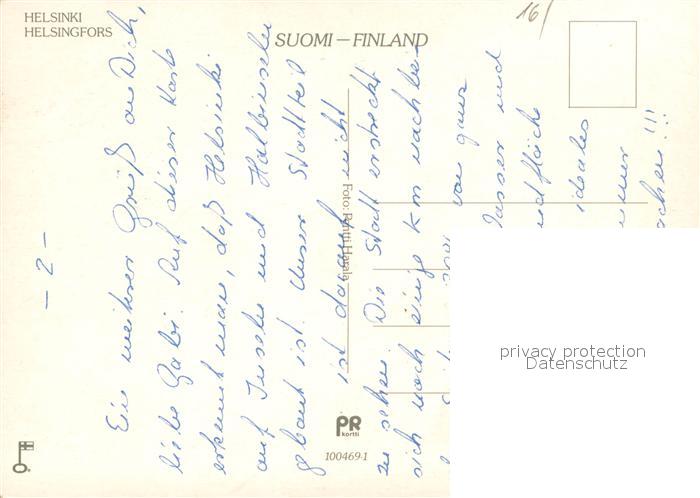 HELSINKI
HELSINGFORS
SUOMI — FINLAND
16/
- 2 -
Ein weiterer Gruß an Dich,
liebe Gabi. Auf dieser Karte
erkennt man, daß Helsinki
auf Inseln und Halbinseln
gebaut ist. Unser Stadtteil
ist darauf nicht
zu sehen. Die Stadt erstreckt
sich noch einige km nach
von ganz
Wasser und
ideales
!!!
Foto: Pentti Harala
PR
kortti
100469-1
privacy protection
Datenschutz